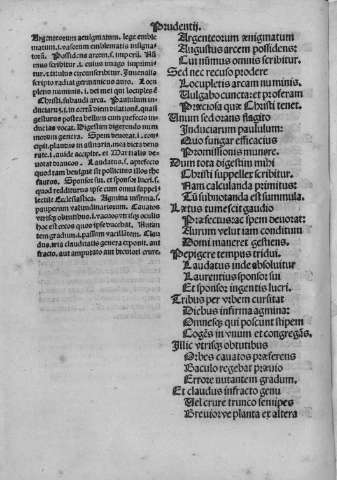 Prudentij.
Argenteorum aenigmatum. lege emble
matum. i. vasorum emblematis insignitorũ.
Possidens arcem. s. imperij.
numus scribitur. i. cuius imago imprimitur.
i. titulus circunscribitur. Iuuenalis
scripto radiat germinis auro. Arcam
numinis. i. dei mei qui locuples ẽ
Christi, subaudi arca. Paululum
induciarũ
gesturos postea bellum cum prefecto inducias vocat.
Digestim digerendo numerorum genera.
Laudatus. s. a prefecto
quod tam benignus sit pollicitus illos thesauros.
Sponsor sui. et sponsor lucri. s.
quod rediturus ipse cum omni suppellectile Ecclesiastica.
Agmina infirma. s.
pauperum valitudinariorum. Cauatos
vtrisqꝫ obtutibus. i. vacuos vtrisqꝫ oculis
hoc est cecos quos ipse vocabat.
tem gradum. i. passum vacillãtem.
dus. aria claudicalis genera exponit. aut
fracto. aut amputato aut breuiori crure.
Argenteorum ænigmatum
Augustus arcem possidens:
Cui nũmus omnis scribitur.
Sed nec recuso prodere
Locupletis arcam numinis.
Vulgabo cuncta: et proferam
Præciosa quæ Christi tenet.
Vnum sed orans flagito
Induciarum paululum:
Quo fungar efficacius
Promissionis munere.
Dum tota digestim mihi
Christi suppellex scribitur.
Nam calculanda primitus:
Tũ subnotanda est summula.
Lætus tumescit gaudio
Præfectus: ac spem deuorat:
Aurum velut iam conditum
Domi maneret gestiens.
Pepigere tempus tridui.
Laudatus inde absoluitur
Laurentius sponsor sui
Et sponsor ingentis lucri.
Tribus per vrbem cursitat
Diebus infirma agmina:
Omnesqꝫ qui poscunt stipem
Cogẽs in vnum et congregãs.
Illic vtrisqꝫ obtutibus
Orbes cauatos præferens
Baculo regebat præuio
Errore nutantem gradum.
Et claudus infracto genu
Vel crure trunco semipes
Breuiorve planta ex altera